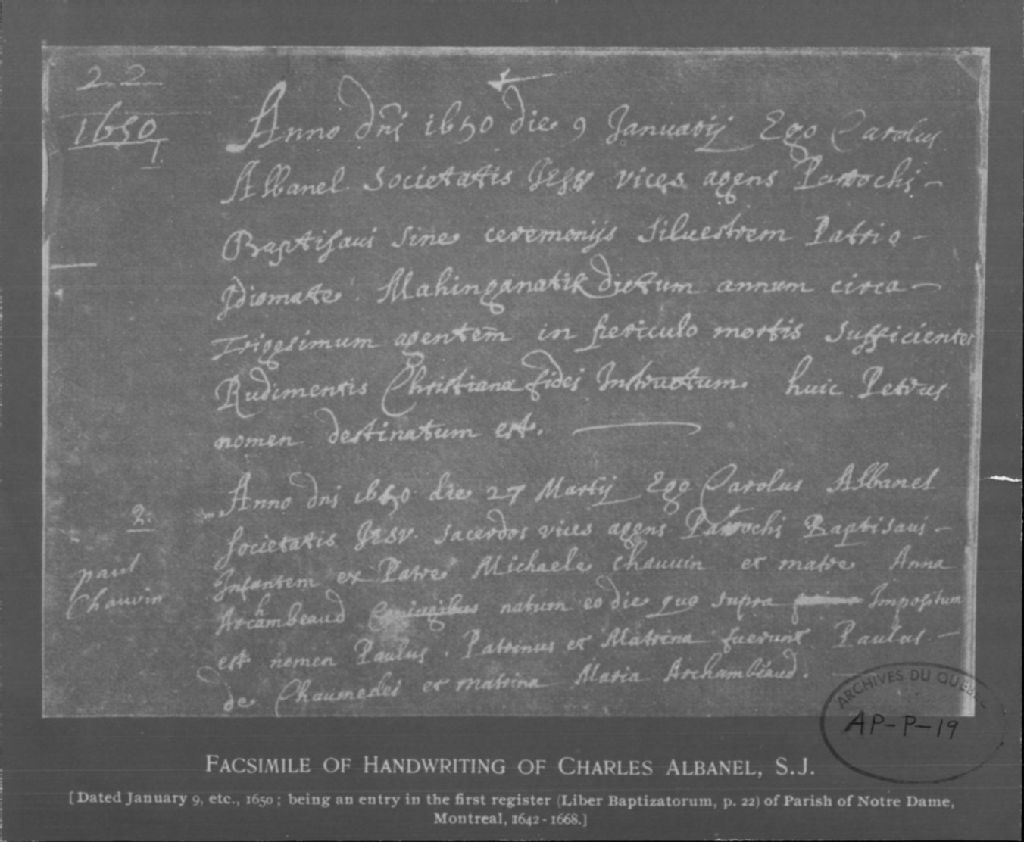 22
1650
1
Anno dnĩ 1650 die 9 Januarij Ego Carolus
Albanel Societatis Jesv vices agens Parrochi –
Baptisaui sine ceremonijs siluestrem Patrio –
Idiomate Mahinganatik dictum annum circa –
trigesimum agentem in periculo mortis sufficienter
Rudimentis Christianæ fidei Instructum huic Petrus
nomen destinatum est.
2.
paul
Chauvin
Anno dnĩ 1650 die 27 Martij Ego Carolus Albanel
societatis Jesv. sacerdos vices agens Parrochi Baptisaui –
Infantem ex Patre Michaele Chauuin et matre Anna
Arcambeaud Coniugibus natum eo die quo supra Impositum
est nomen Paulus. Patrinus et Matrina fuerunt Paulus –
de Chaumedei et matrina Maria Archambeaud.
ARCHIVES DU QUÉBEC
AP-P-19
FACSIMILE OF HANDWRITING OF CHARLES ALBANEL, S.J.
[Dated January 9, etc., 1650; being an entry in the first register (Liber Baptizatorum, p. 22) of Parish of Notre Dame,
Montreal, 1642-1668.]